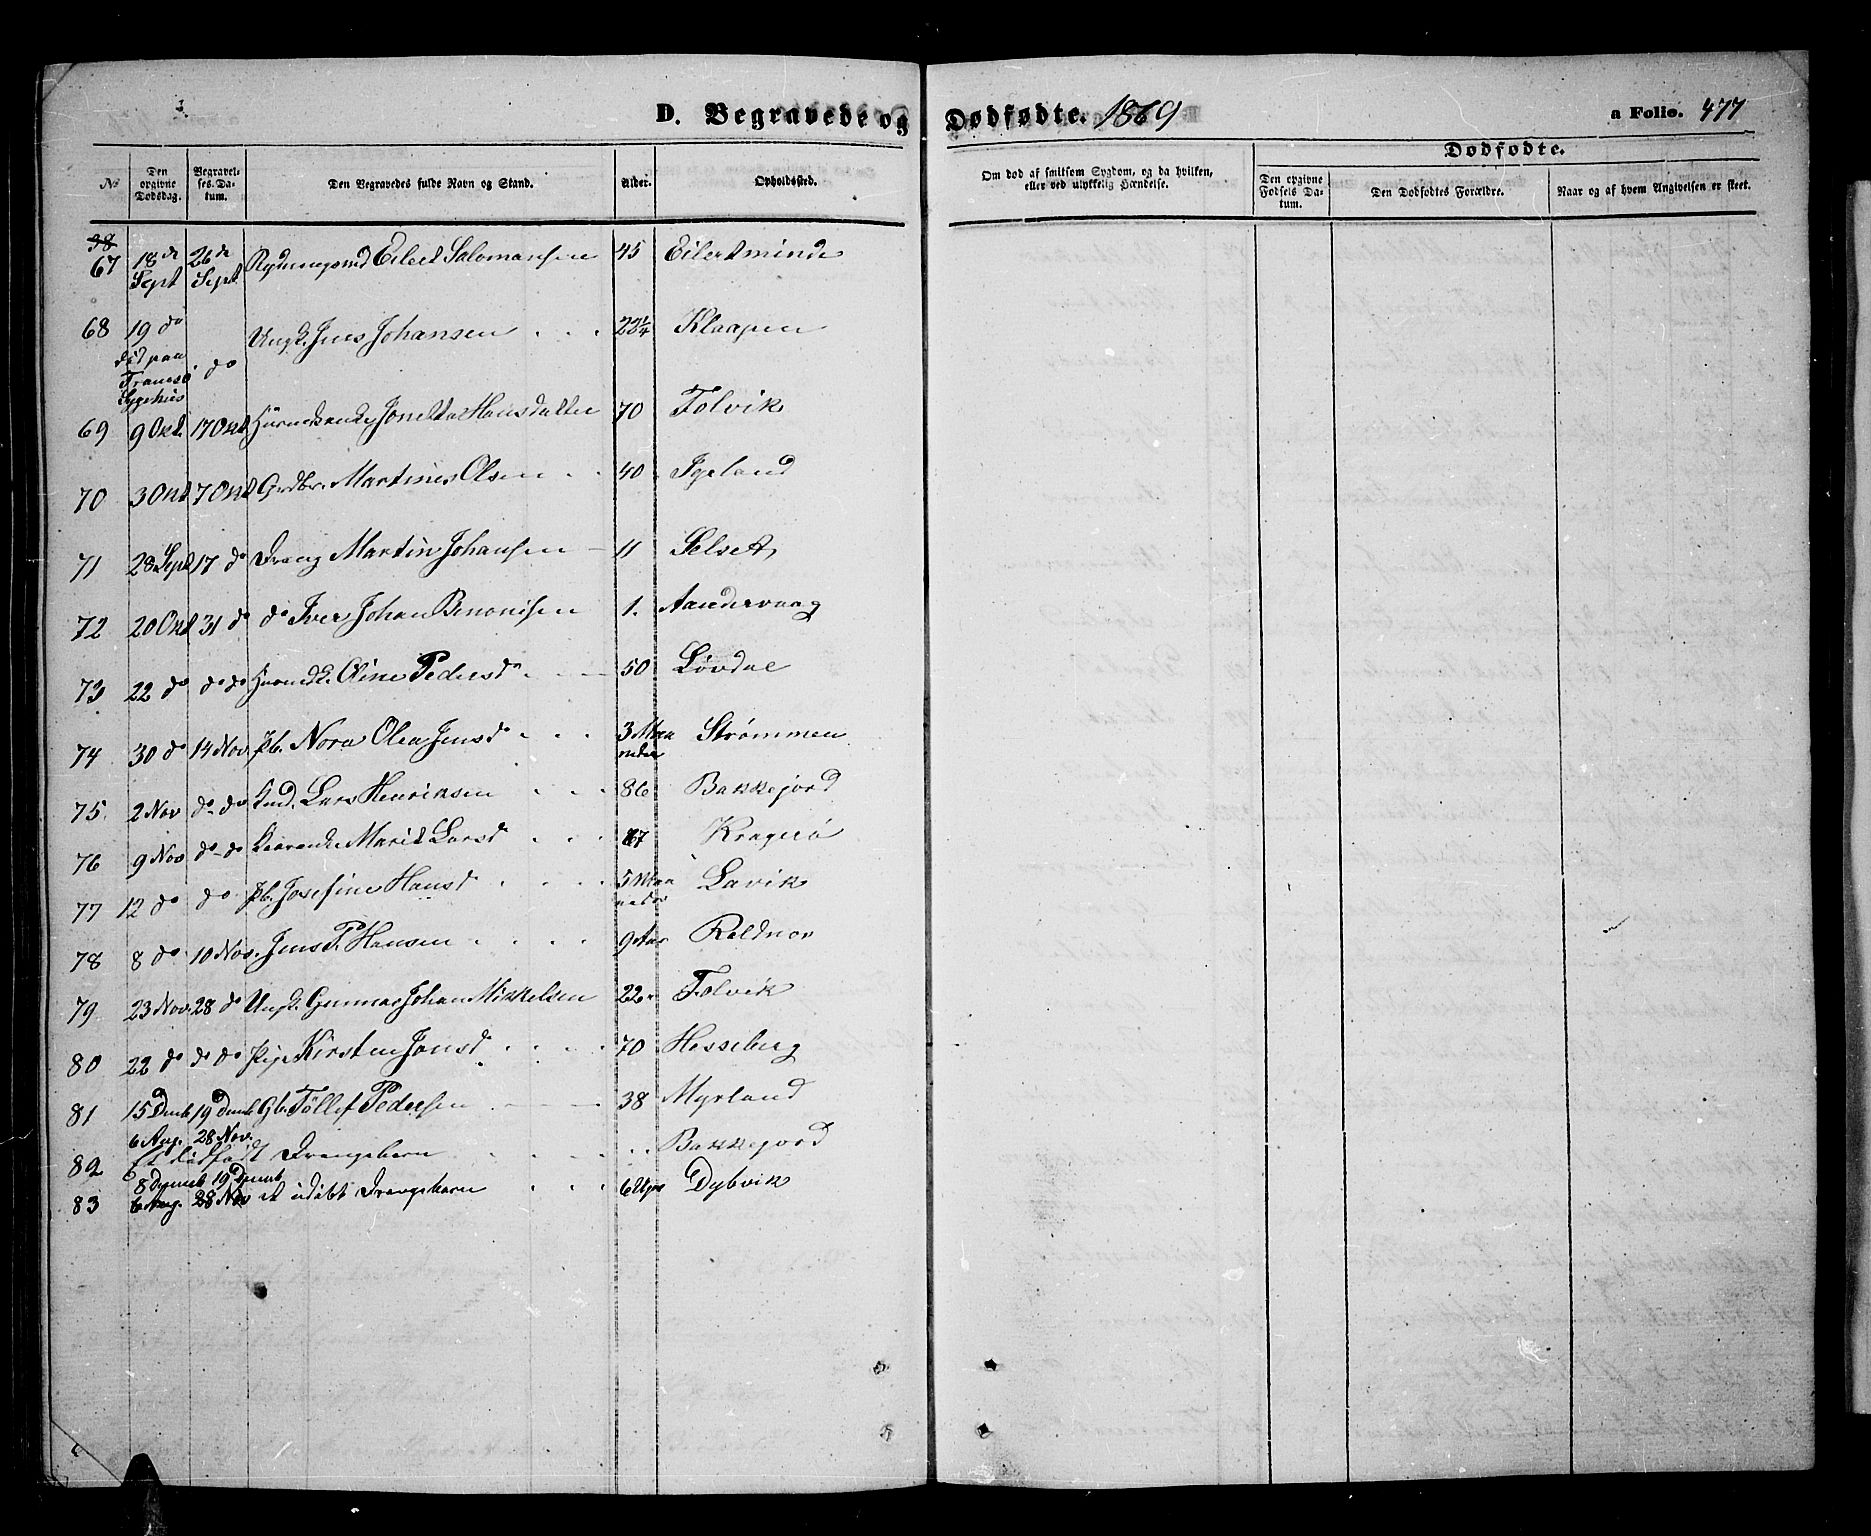 D. Begravede og Dødfødte. 1869
a Folio. 477
№ Den opgivne Dødsdag. Begravelses-Datum. Den Begravedes fulde Navn og Stand. Alder. Opholdssted.
Om død af smitsom Sygdom, og da hvilken, eller ved ulykkelig Hændelse.
Dødfødte.
Den opgivne Fødsels Datum. Den Dødfødtes Forældre. Naar og af hvem Angivelsen er skeet.
38
67 18de Sept 26de Sept Rydningsmd Eilert Salomonsen 45 Eilertminde
68 19 do død paa Tranesø Sygehuus do Ungk. Jens Johansen 22¼ Klaapen
69 9 Okt. 17 Okt Jonetta Hansdatter 70 Folvik
70 3 Okt 7 Okt Grdbr. Martines Olsen 40
71 28 Sept 17 do Dreng Martin Johansen 11 Selset
72 20 Okt 31 do do Iver Johan Benonisen 1. Aandervaag
73 22 do do do Oline Pedersd 50 Løvdal
74 30 do 14 Nov. pb. Nora Olea Jensd 3 Maaneder Strømmen
75. 2 Nov do do Lars Henriksen 86 Bakkejord
76 9 Nov do do Marit Larsd 67 Kragerö
77 12 do do pb. Josefine Hansd 5 Maaneder Lavik
78 8 do 10 Nov. Jens P. Hansen 9 Aar
79 23 Nov. 28 do Ungk. Gunnar Johan Mikkelsen 22 Folvik
80 22 do do do Pige Kirsten Jonsd 70 Hesseberg
81 15 Decmb 19 Decmb Gb. Tøllef Pedersen 38 Myrland
6 Aug. 28 Nov.
82 Et dødfødt Drengebarn Bakkejord
8 Decmb 19 Decmb
83 6 Aug. 28 Nov et udøbt Drengebarn 6 Uger Dybvik